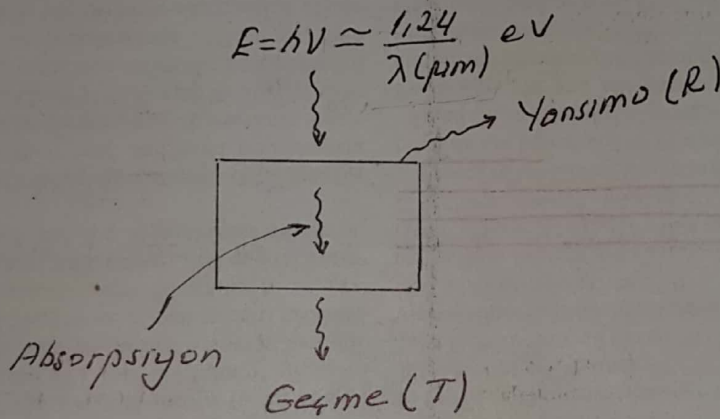 E=hν≃ 1,24 / λ(μm) eV
Yansıma (R)
Absorpsiyon
Geçme (T)